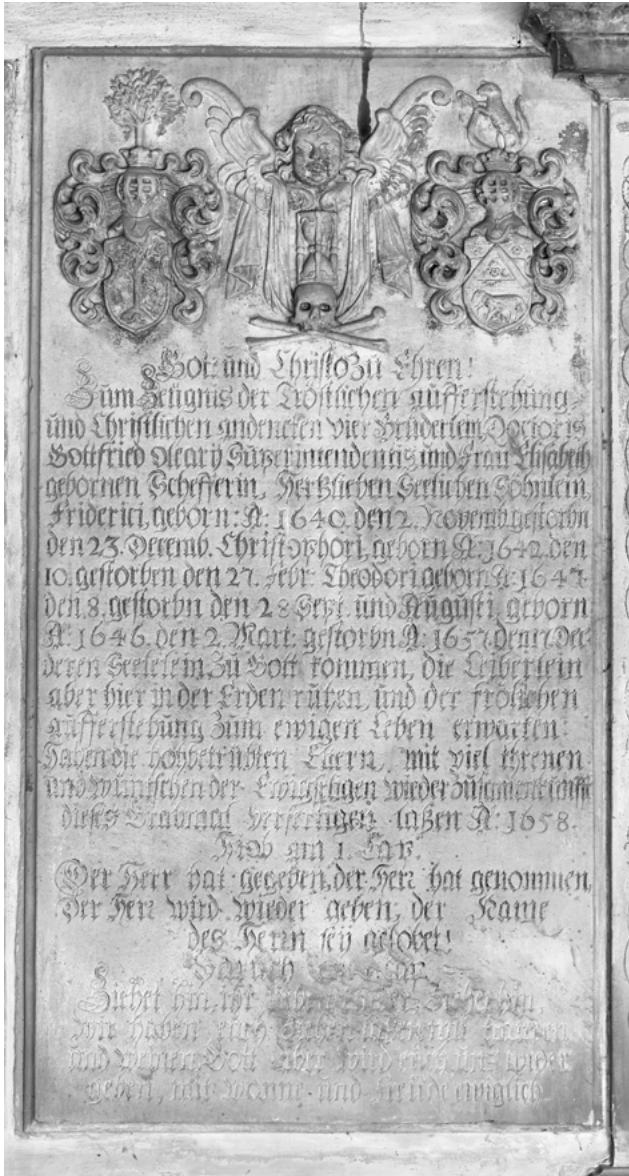 Gott und Christo Zu Ehren!
Zum Zeugnis der Tröstlichen aufferstehung
und Christlichen andencken vier Brüderlein, Doctoris
Gottfried Olearÿ Superintendentis, und Frau Elisabeth
gebornen Schefferin, Hertzlieben Seelichen Söhnlein,
Friderici, geborn: A: 1640. den 2. Novemb. gestorbn
den 23. Decemb. Christophori, geborn A: 1642. den
10. gestorben den 27. Febr. Theodori geborn A: 1647.
den 8. gestorbn den 28 Sept. und Augusti, geborn
A: 1646. den 2. Mart. gestorbn A: 1657. den 17 Dec:
deren Seelelein, Zu Gott kommen, die Leiberlein
aber hier in der Erden ruhen, und der frölichen
aufferstehung Zum ewigen Leben erwarten:
haben die hochbetrübten Eltern, mit viel threnen
und wüntschen der Ewigseligen wieder
dieses Grabmal verfertigen laßen A: 1658.
Hiob am 1. Cap.
Der Herr hat gegeben, der Herr hat genommen,
Der Herr wird wieder geben, der Name
des Herrn seÿ gelobet!
Baruch
Ziehet hin, ihr lieben Kinder, Ziehet hin,
wir haben euch
und Gott aber wird euch uns wider
geben, mit wonne und freude ewiglich